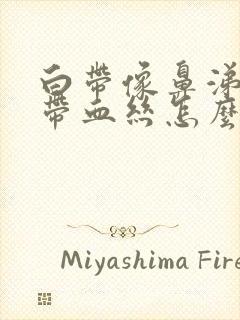 白带像鼻涕
带血丝怎麼
Miyashima Fire